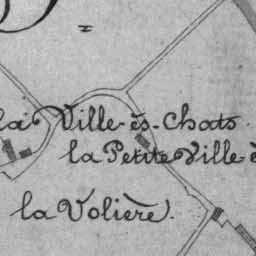 la Ville-ès-Chats.
la Petite Ville-è
la Volière.